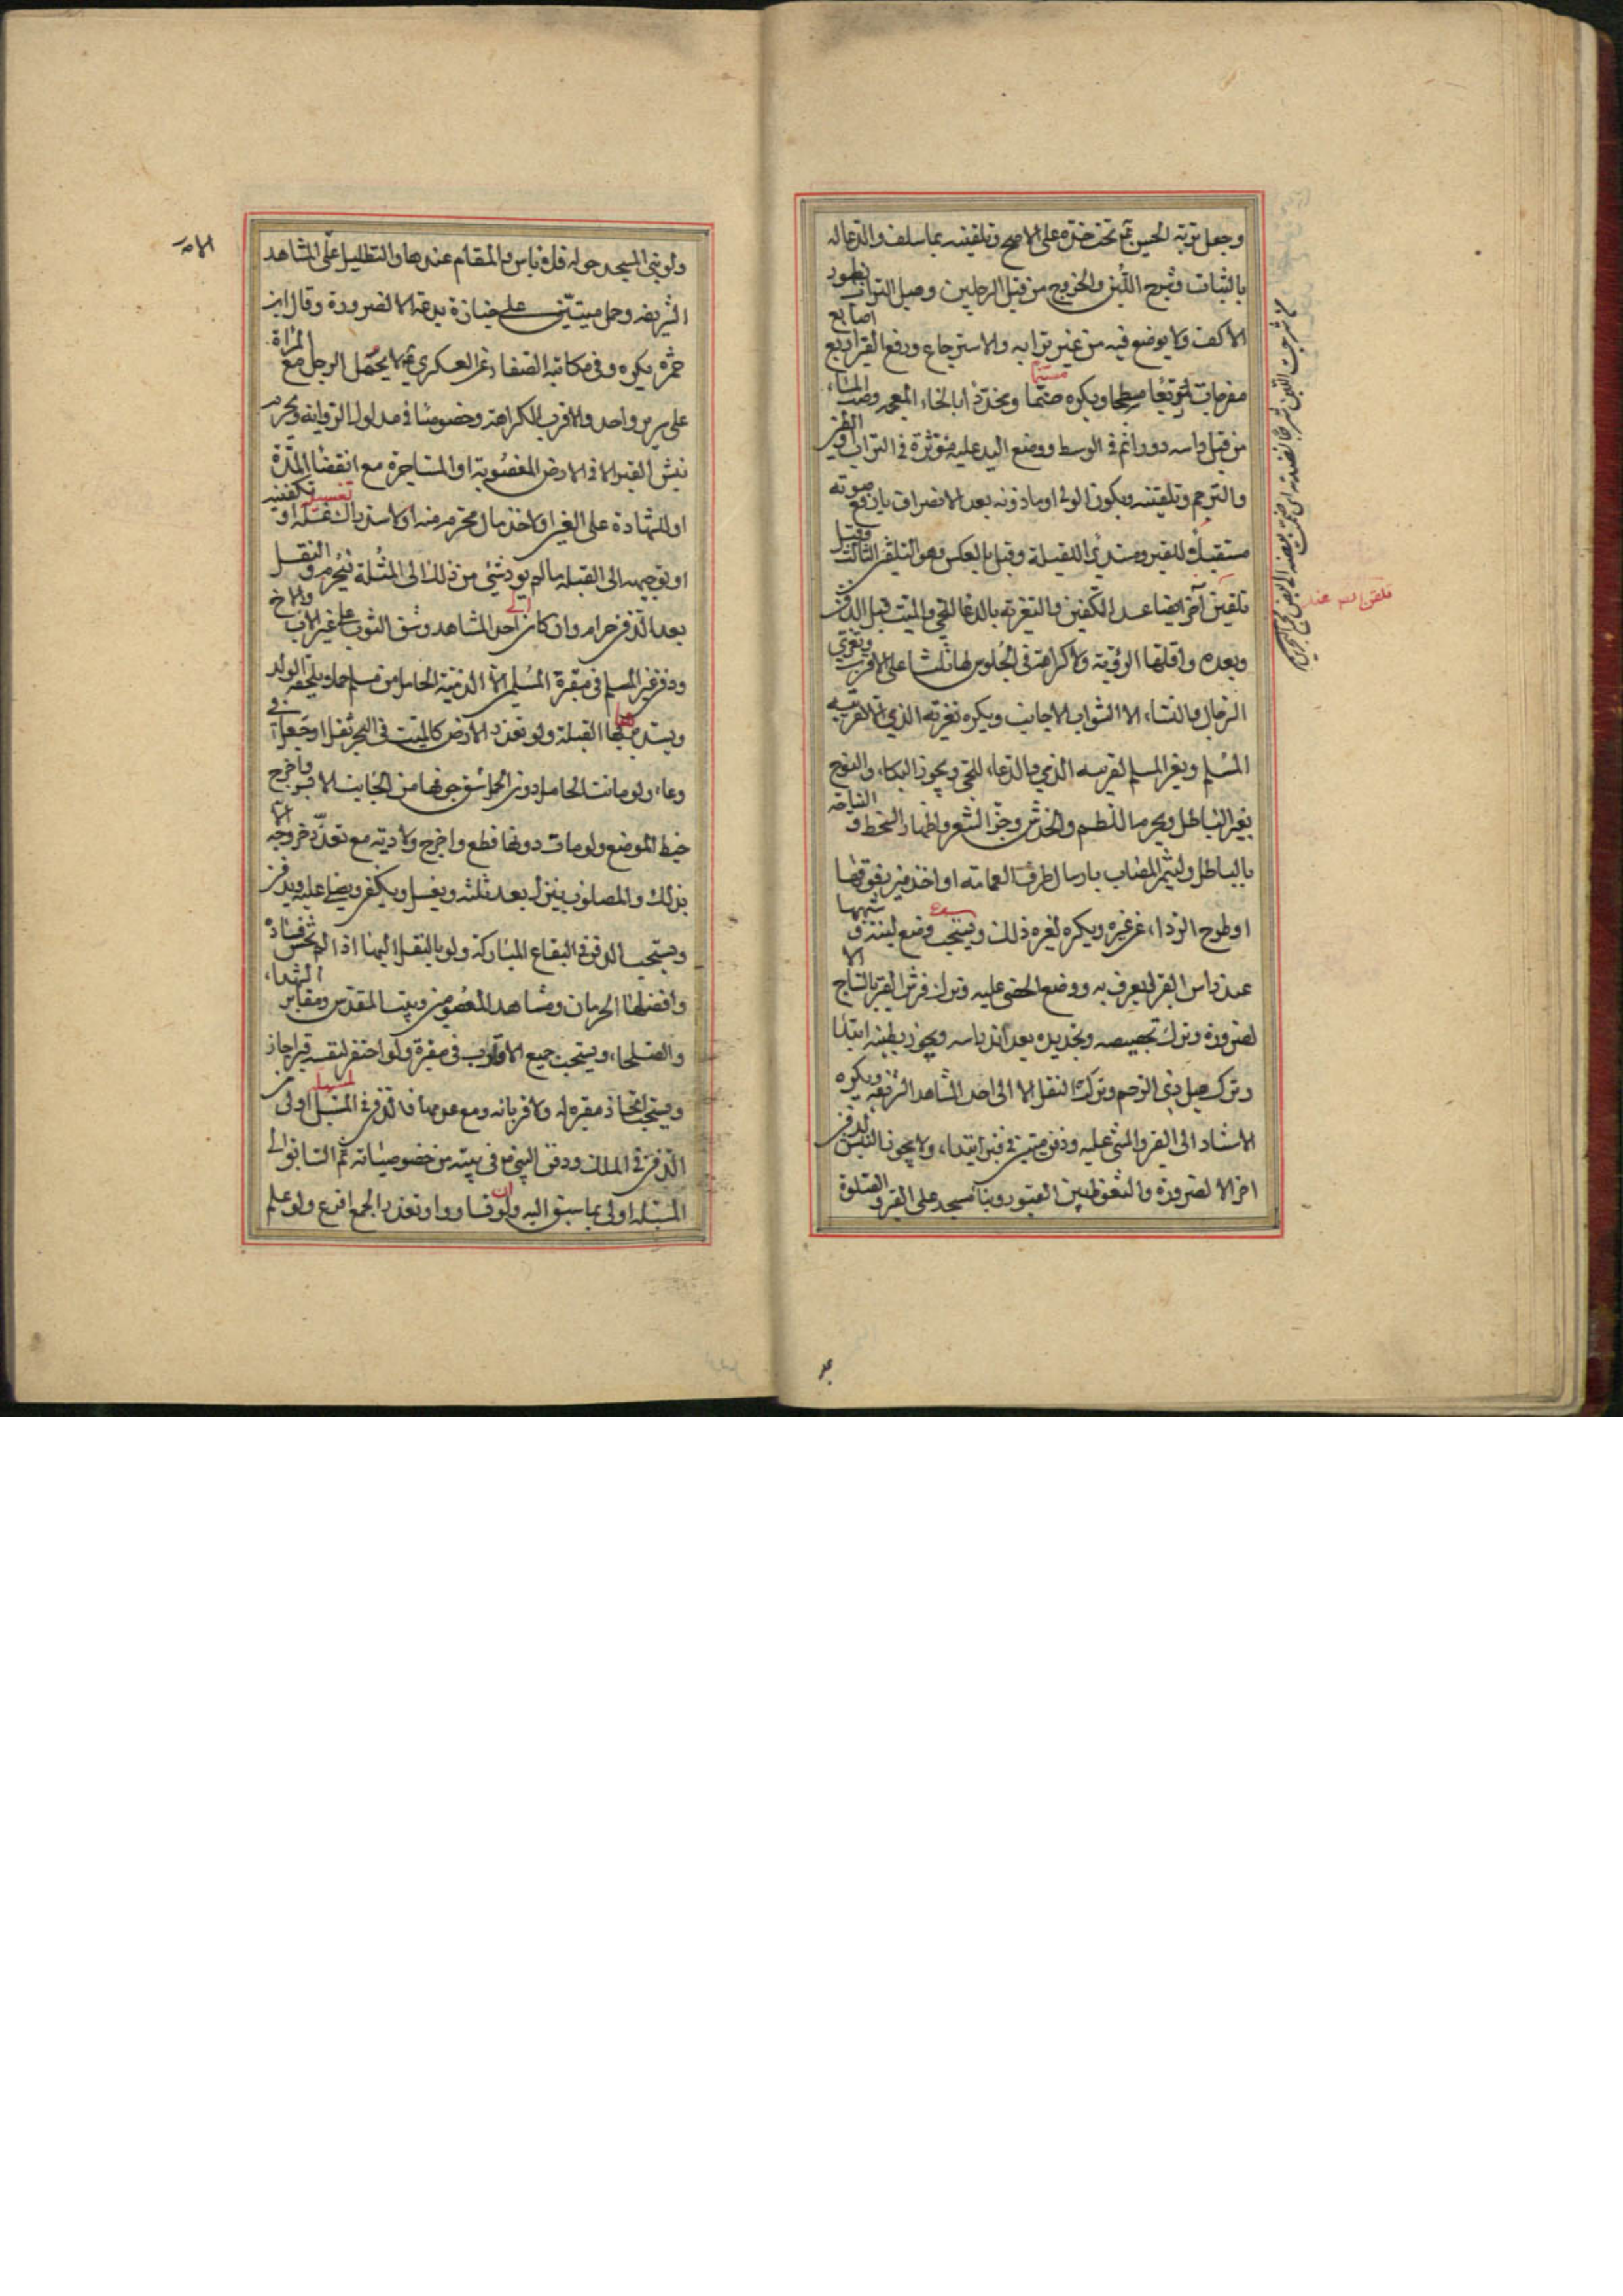 وجعل تربة الحسين ع تحت خده على الاصح وتلقينه بما سلف والدعا له
بالثبات وشرج اللبن والخروج من قبل الرجلين وهيل التراب بظهور
الاكف ولا يوضع فيه من غير ترابه والاسترجاع ورفع القبر اربع اصابع
مفرجات لا مسنما مربعا مسطحا ويكره وبخدد ابا لخاء المعجمة وصب الماء
من قبل راسه دورا ثم في الوسط ووضع اليد عليه مؤثرة في التراب
والترحم وتلقينه ويكون الولى او ماذونه بعد الانصراف بارفع صوته
مستقبلا للقبر ومستدبرا للقبلة وقيل بالعكس وهو التلقين الثالث وقيل
تلقين آخر ايضا عند التكفين والتعزية بالدعا للحي والميت قبل الدفن
وبعده واقلها الرؤية ولا كراهة في الجلوس لها ثلثا على الاقرب وتعزى
الرجال والنساء الا الشواب الاجانب ويكره تعزية الذمي لقريبه
المسلم ويعز المسلم لقريبه الذمي والدعاء للحي ويجوز البكاء والنوح
بغير الباطل ويحرم اللطم والخدش وجز الشعر واظهار السخط و النياحة
بالباطل وليتميز المصاب بارسال طرف العمامة او اخذ ميزر فوقها
او طرح الرداء عن غيره ويكره لغيره ذلك ويستحب وضع لبنة و شبهها
عند راس القبر ليعرف به ووضع الحصى عليه وترك فرش القبر بالساج الا
لضرورة وترك تجصيصه وتجديده بعد اندراسه ويجوز تطيينه ابتدا
وترك هيل ذي الرحم وترك النقل الا الى احد المشاهد الشريفة ويكره
الاستناد الى القبر والمشي عليه ودفن ميتين في قبر ابتداء ولا يجوز النبش لدفن
اخر الا لضرورة والتغوط بين القبور وبناء مسجد على القبر والصلوة
ولو بني المسجد حوله فلا باس والمقام عندها والتظليل على المشاهد
الشريفة وحمل ميتين على جنازة بدعة الا لضرورة وقال ابن
حمزه يكره وفي مكاتبة الصفار عن العسكري ع لا يحمل الرجل مع المراة
على سرير واحد والاقرب الكراهة وخصوصا في مدلول الرواية ويحرم
نبش القبر الا في الارض المغصوبة او المستاجرة مع انقضا المدة
او للشهادة على العين او لاخذ مال محترم منه او لاستدراك غسله او تكفينه
او توجيهه الى القبلة ما لم يود شئ من ذلك الى المثلة فيحرم والنقل
بعد الدفن حرام وان كان الى احد المشاهد وشق الثوب على غير الاب والاخ
ودفن غير المسلم في مقبرة المسلمين الا الذمية الحامل من مسلم حملا يلحقه الولد
ويستدبر بها القبلة ولو تعذر الارض كالميت في البحر ثقل او جعل في
وعاء ولو ماتت الحامل دون الحمل شق جوفها من الجانب الايسر واخرج
خيط الموضع ولو مات دونها قطع واخرج ولا دية مع تعذر خروجه الا
بذلك والمصلوب ينزل بعد ثلثه ويغسل ويكفن ويصلى عليه ويدفن
ويستحب الدفن في البقاع المباركة ولو بالنقل اليها اذا لم يخش فساده
وافضلها الحرمان ومشاهد المعصومين وبيت المقدس ومقابر الشهداء
والصلحاء ويستحب جمع الاقارب في مقبرة ولو احتفر لنفسه قبرا جاز
ويستحب اتخاذ مقبرة له ولاقربائه ومع عدمها فالدفن في المسبلة اولى من
الدفن في الملك ودفن النبي ص في بيته من خصوصياته ثم السابق الى
المسبلة اولى بما سبق اليه ولو تساووا وتعذر الجمع اقرع ولو علم